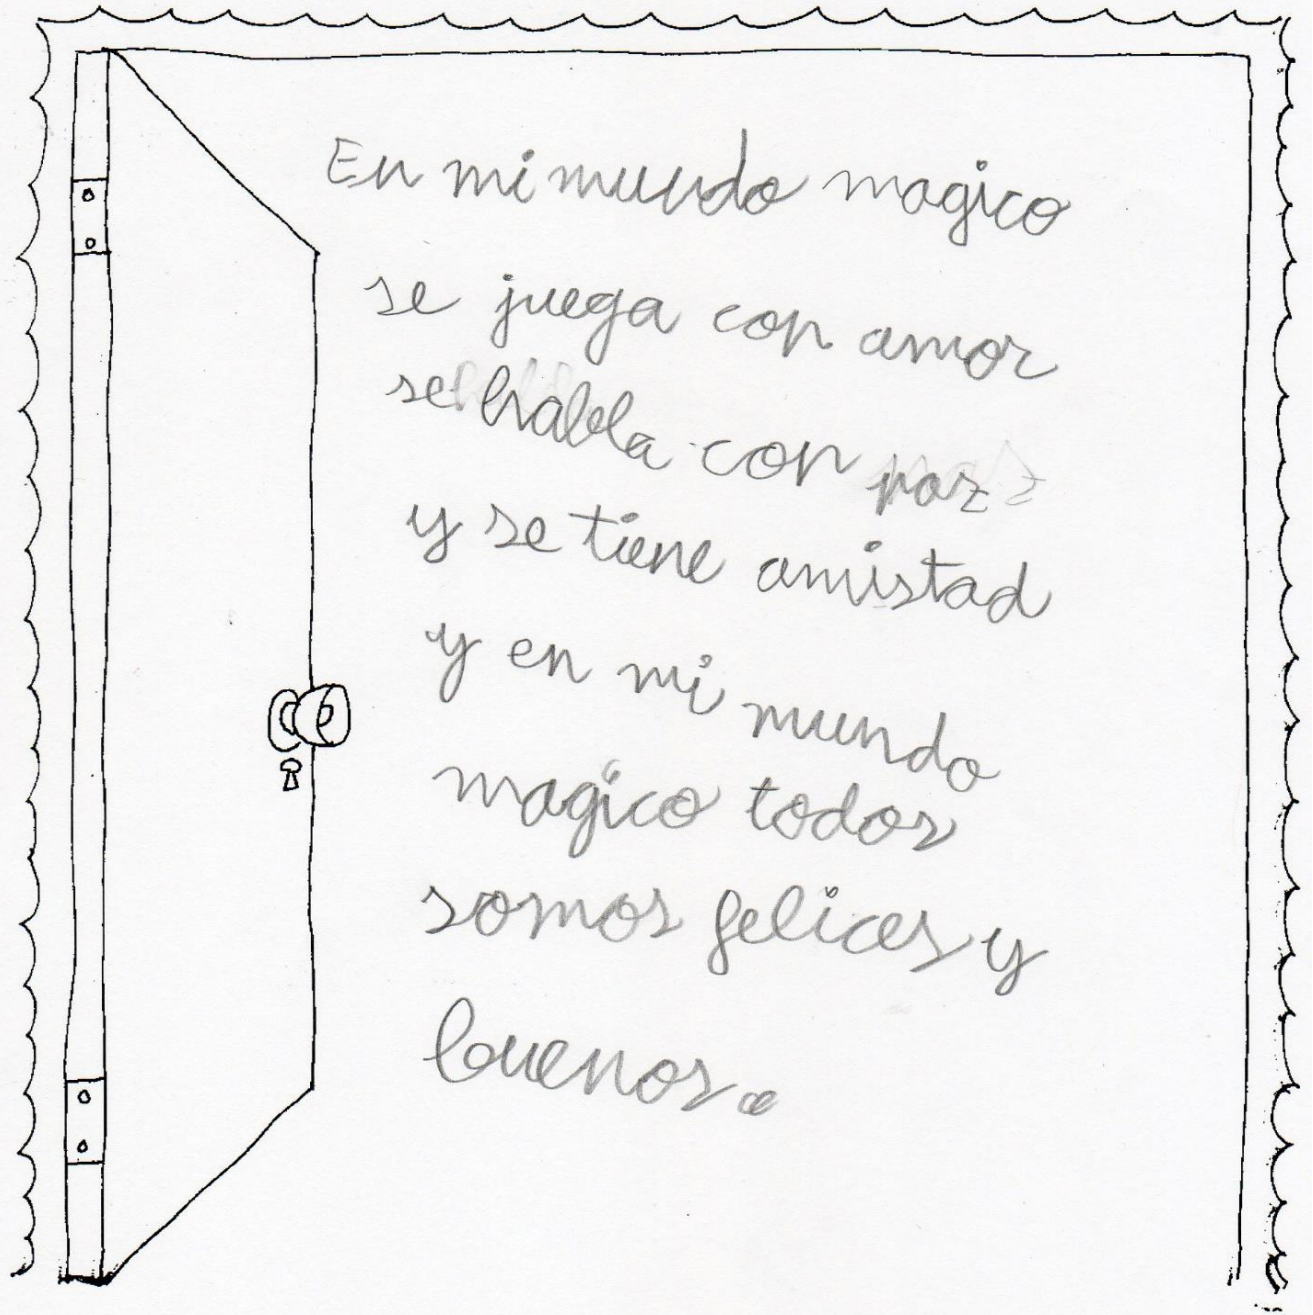 En mi mundo magico
se juega con amor
se habla con paz
y se tiene amistad
y en mi mundo
magico todos
somos felices y
buenos.